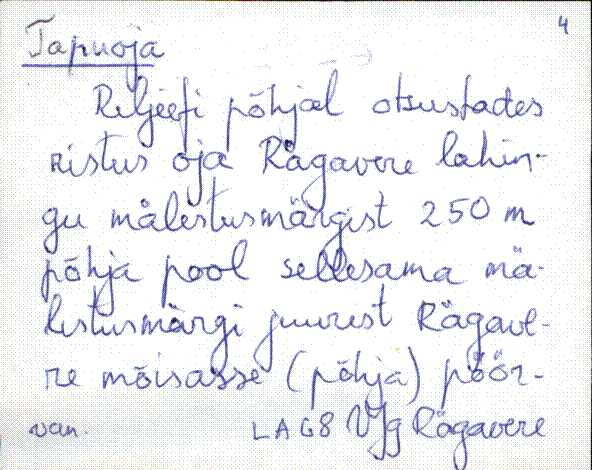 4
Tapuoja
Reljeefi põhjal otsustades
ristus oja Rägavere lahin-
gu mälestusmärgist 250 m
põhja pool sellesama mä-
lestusmärgi juurest Rägave-
re mõisasse (põhja) pöör-
van. LA 68 VJg Rägavere